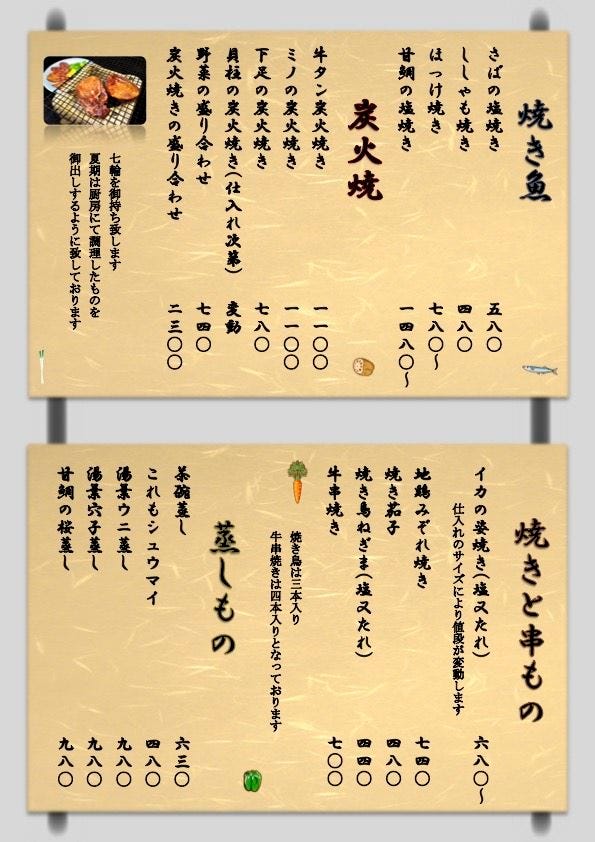 焼き魚
さばの塩焼き 五八〇
ししゃも焼き 四八〇
ほっけ焼き 七八〇～
甘鯛の塩焼き 一四八〇～
炭火焼
牛タン炭火焼き 一一〇〇
ミノの炭火焼き 一一〇〇
下足の炭火焼き 七八〇
貝柱の炭火焼き(仕入れ次第) 変動
野菜の盛り合わせ 七四〇
炭火焼きの盛り合わせ 二三〇〇
七輪を御持ち致します
夏期は厨房にて調理したものを
御出しするように致しております
焼きと串もの
イカの姿焼き(塩又たれ) 六八〇～
仕入れのサイズにより値段が変動します
地鶏みぞれ焼き 七四〇
焼き茄子 四八〇
焼き鳥ねぎま(塩又たれ) 四四〇
牛串焼き 七〇〇
焼き鳥は三本入り
牛串焼きは四本入りとなっております
蒸しもの
茶碗蒸し 六三〇
これもシュウマイ 四八〇
湯葉ウニ蒸し 九八〇
湯葉穴子蒸し 九八〇
甘鯛の桜蒸し 九八〇